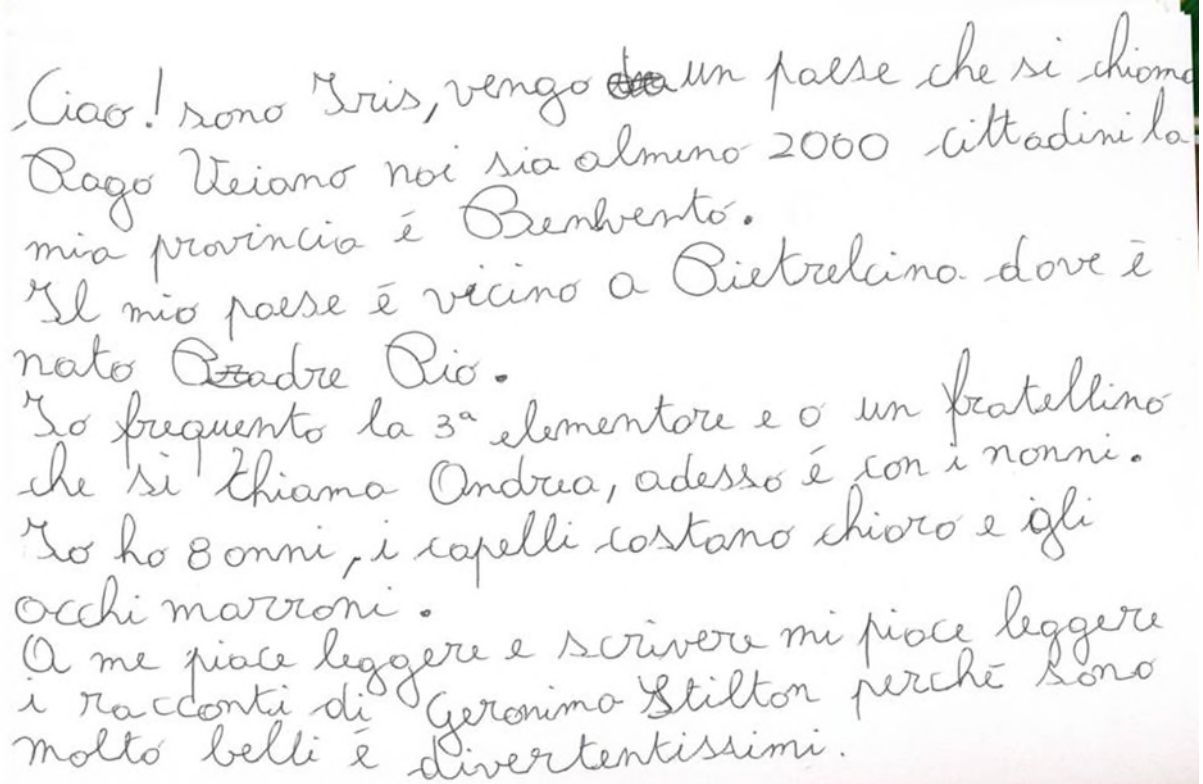 Ciao! sono Iris, vengo da un paese che si chiama
Pago Veiano noi sia almeno 2000 cittadini la
mia provincia é Benevento.
Il mio paese é vicino a Pietrelcina dove è
nato Padre Pio.
Io frequento la 3ª elementare e o un fratellino
che si chiama Andrea, adesso é con i nonni.
Io ho 8 anni, i capelli castano chiaro e gli
occhi marroni.
A me piace leggere e scrivere mi piace leggere
i racconti di Geronimo Stilton perché sono
molto belli è divertentissimi.